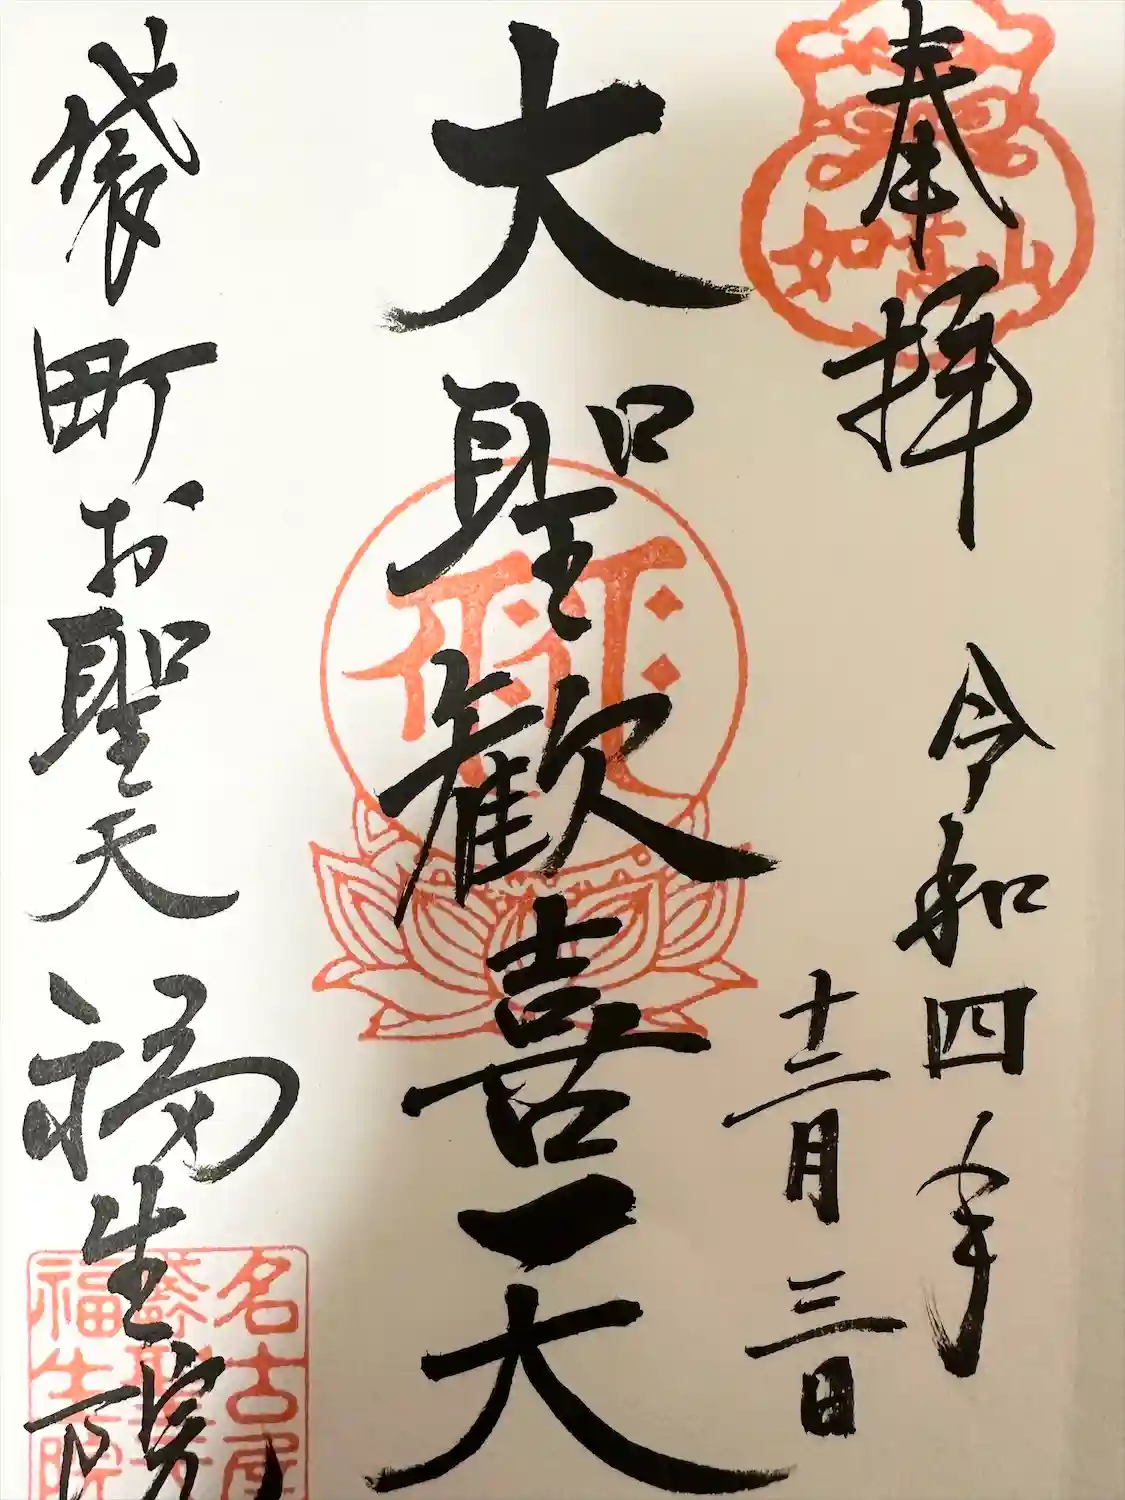 奉拝
如意山
令和四年
十二月三日
大聖歓喜天
袋町お聖天
福生院
名古屋
福生院